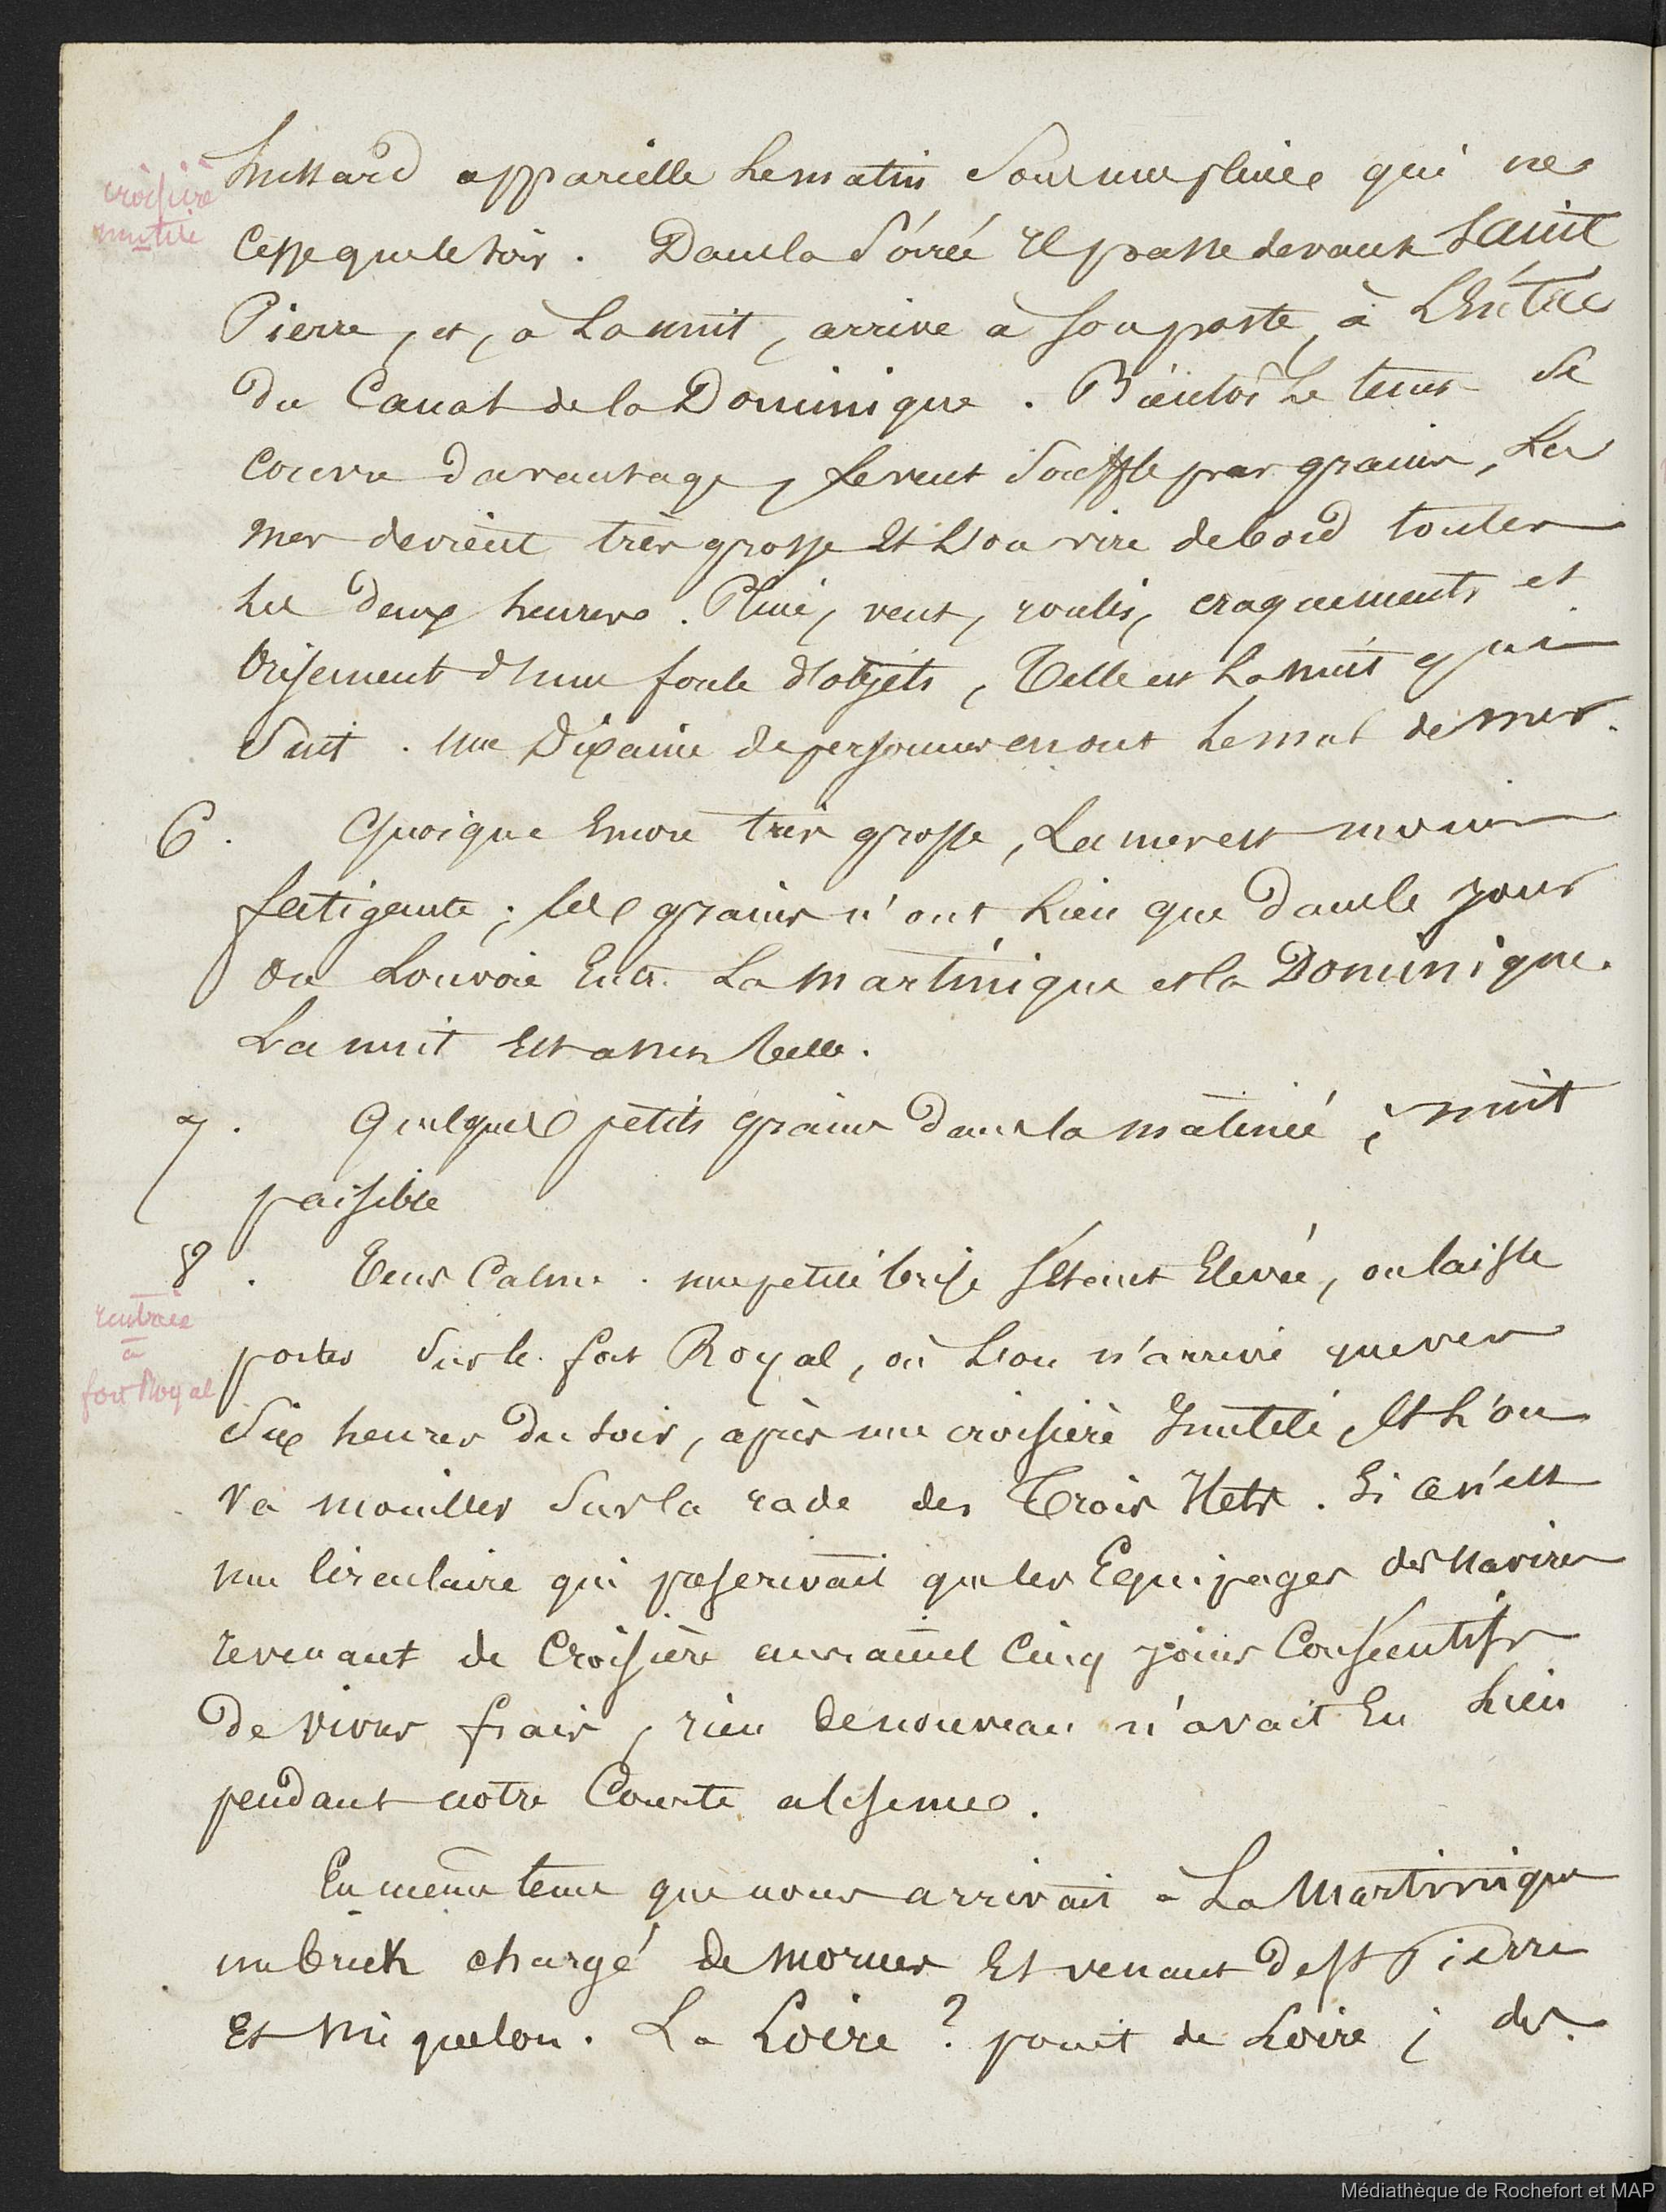 croisière
inutile
hussard appareille le matin sous une pluie qui ne
cesse que le soir. Dans la soirée il passe devant Saint
Pierre, et, à la nuit, arrive à son poste, à l'entrée
du Canal de la Dominique. Bientôt le tems se
couvre davantage, le vent souffle par grains, la
mer devient très grosse et l'on vire de bord toutes
les deux heures. Pluie, vent, roulis, craquements et
brisement d'une foule d'objets, telle est la nuit qui
suit. une dixaine de personnes en ont le mal de mer.
6. Quoique encore très grosse, la mer est moins
fatigante; les grains n'ont lieu que dans le jour
on louvoie entre la Martinique et la Dominique.
La nuit est assez belle.
7. Quelques petits grains dans la matinée; nuit
paisible
8. Tems calme. une petite brise s'étant élevée, on laisse
rentrée
à
fort Royal
porter sur le fort Royal, où l'on n'arrive que vers
six heures du soir, après une croisière inutile, et l'on
va mouiller sur la rade des Trois Ilets. Si ce n'est
une circulaire qui prescrivait que les Equipages des navires
revenant de croisière auraient cinq jours consécutifs
de vivres frais, rien de nouveau n'avait eu lieu
pendant notre courte absence.
En même tems que nous arrivait à la Martinique
un brick chargé de morues et venant de St Pierre
et Miquelon. La Loire? point de Loire; des
Médiathèque de Rochefort et MAP